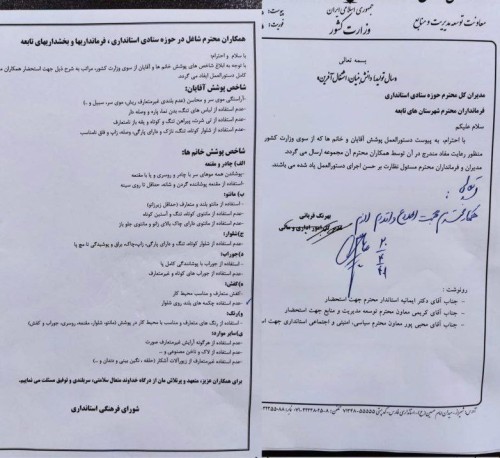 همکاران محترم شاغل در حوزه ستادی استانداری، فرمانداریها و بخشداریهای تابعه
با سلام و احترام؛
با توجه به ابلاغ شاخص های پوشش خانم ها و آقایان از سوی وزارت کشور، مراتب به شرح ذیل جهت استحضار همکاران
کامل دستورالعمل ایفاد می گردد.
شاخص پوشش آقایان:
-آراستگی موی سر و محاسن (عدم بلندی غیرمتعارف ریش، موی سر، سبیل و ...)
-عدم استفاده از لباس های جذب، بدن نما، پاره و وصله دار
-عدم استفاده از تی شرت، پیراهن تنگ و کوتاه و یقه باز نامتعارف
-عدم استفاده از شلوار کوتاه، تنگ، نازک و دارای پارگی، وصله، زاپ و فاق نامناسب
شاخص پوشش خانم ها:
الف) چادر و مقنعه
-پوشاندن همه موهای سر با چادر و روسری و یا با مقنعه
-استفاده از مقنعه پوشاننده گردن و شانه، حداقل تا روی سینه
ب) مانتو:
- استفاده از مانتو بلند و متعارف (حداقل زیرزانو)
-عدم استفاده از مانتوی کوتاه، تنگ و آستین کوتاه
-عدم استفاده از مانتوی دارای چاک بالای زانو و مانتوی جلو باز
ج)شلوار:
- عدم استفاده از شلوار کوتاه، تنگ و دارای پارگی، زاپ،چاک، براق و پوشیدگی تا مچ پا
د)جوراب:
- استفاده از جوراب با پوشانندگی کامل پا
-عدم استفاده از جوراب های کوتاه و غیرمتعارف
ه)کفش:
-کفش متعارف و مناسب محیط کار
-عدم استفاده چکمه های بلند روی شلوار
و)رنگ:
- استفاده از رنگ های متعارف و متناسب با محیط کار در پوشش (مانتو، شلوار، مقنعه، روسری، جوراب و کفش)
ی)سایر موارد:
-عدم استفاده از هرگونه آرایش غیرمتعارف صورت
-عدم استفاده از لاک و ناخن مصنوعی و ...
-عدم استفاده از زیورآلات آشکار (حلقه ، نگین بینی و دندان و ...)
برای همکاران عزیز، متعهد و پرتلاش مان از درگاه خداوند متعال سلامتی، سربلندی و توفیق مسئلت می نماییم.
شورای فرهنگی استانداری
جمهوری اسلامی ایران
وزارت کشور
معاونت توسعه مدیریت و منابع
پیوست
فوریت
بسمه تعالی
«سال تولید؛ دانش بنیان، اشتغال آفرین»
مدیران کل محترم حوزه ستادی استانداری
فرمانداران محترم شهرستان های تابعه
سلام علیکم
با احترام، به پیوست دستورالعمل پوشش آقایان و خانم ها که از سوی وزارت کشور
منظور رعایت مفاد مندرج در آن توسط همکاران محترم آن مجموعه ارسال می گردد.
مدیران و فرمانداران محترم مسئول نظارت بر حسن اجرای دستورالعمل یاد شده می باشند.
بهرنگ قربانی
رونوشت :
- جناب آقای دکتر ایمانیه استاندار محترم جهت استحضار
- جناب آقای کریمی معاون محترم توسعه مدیریت و منابع جهت استحضار
- جناب آقای محبی پور معاون محترم سیاسی، امنیتی و اجتماعی استانداری جهت